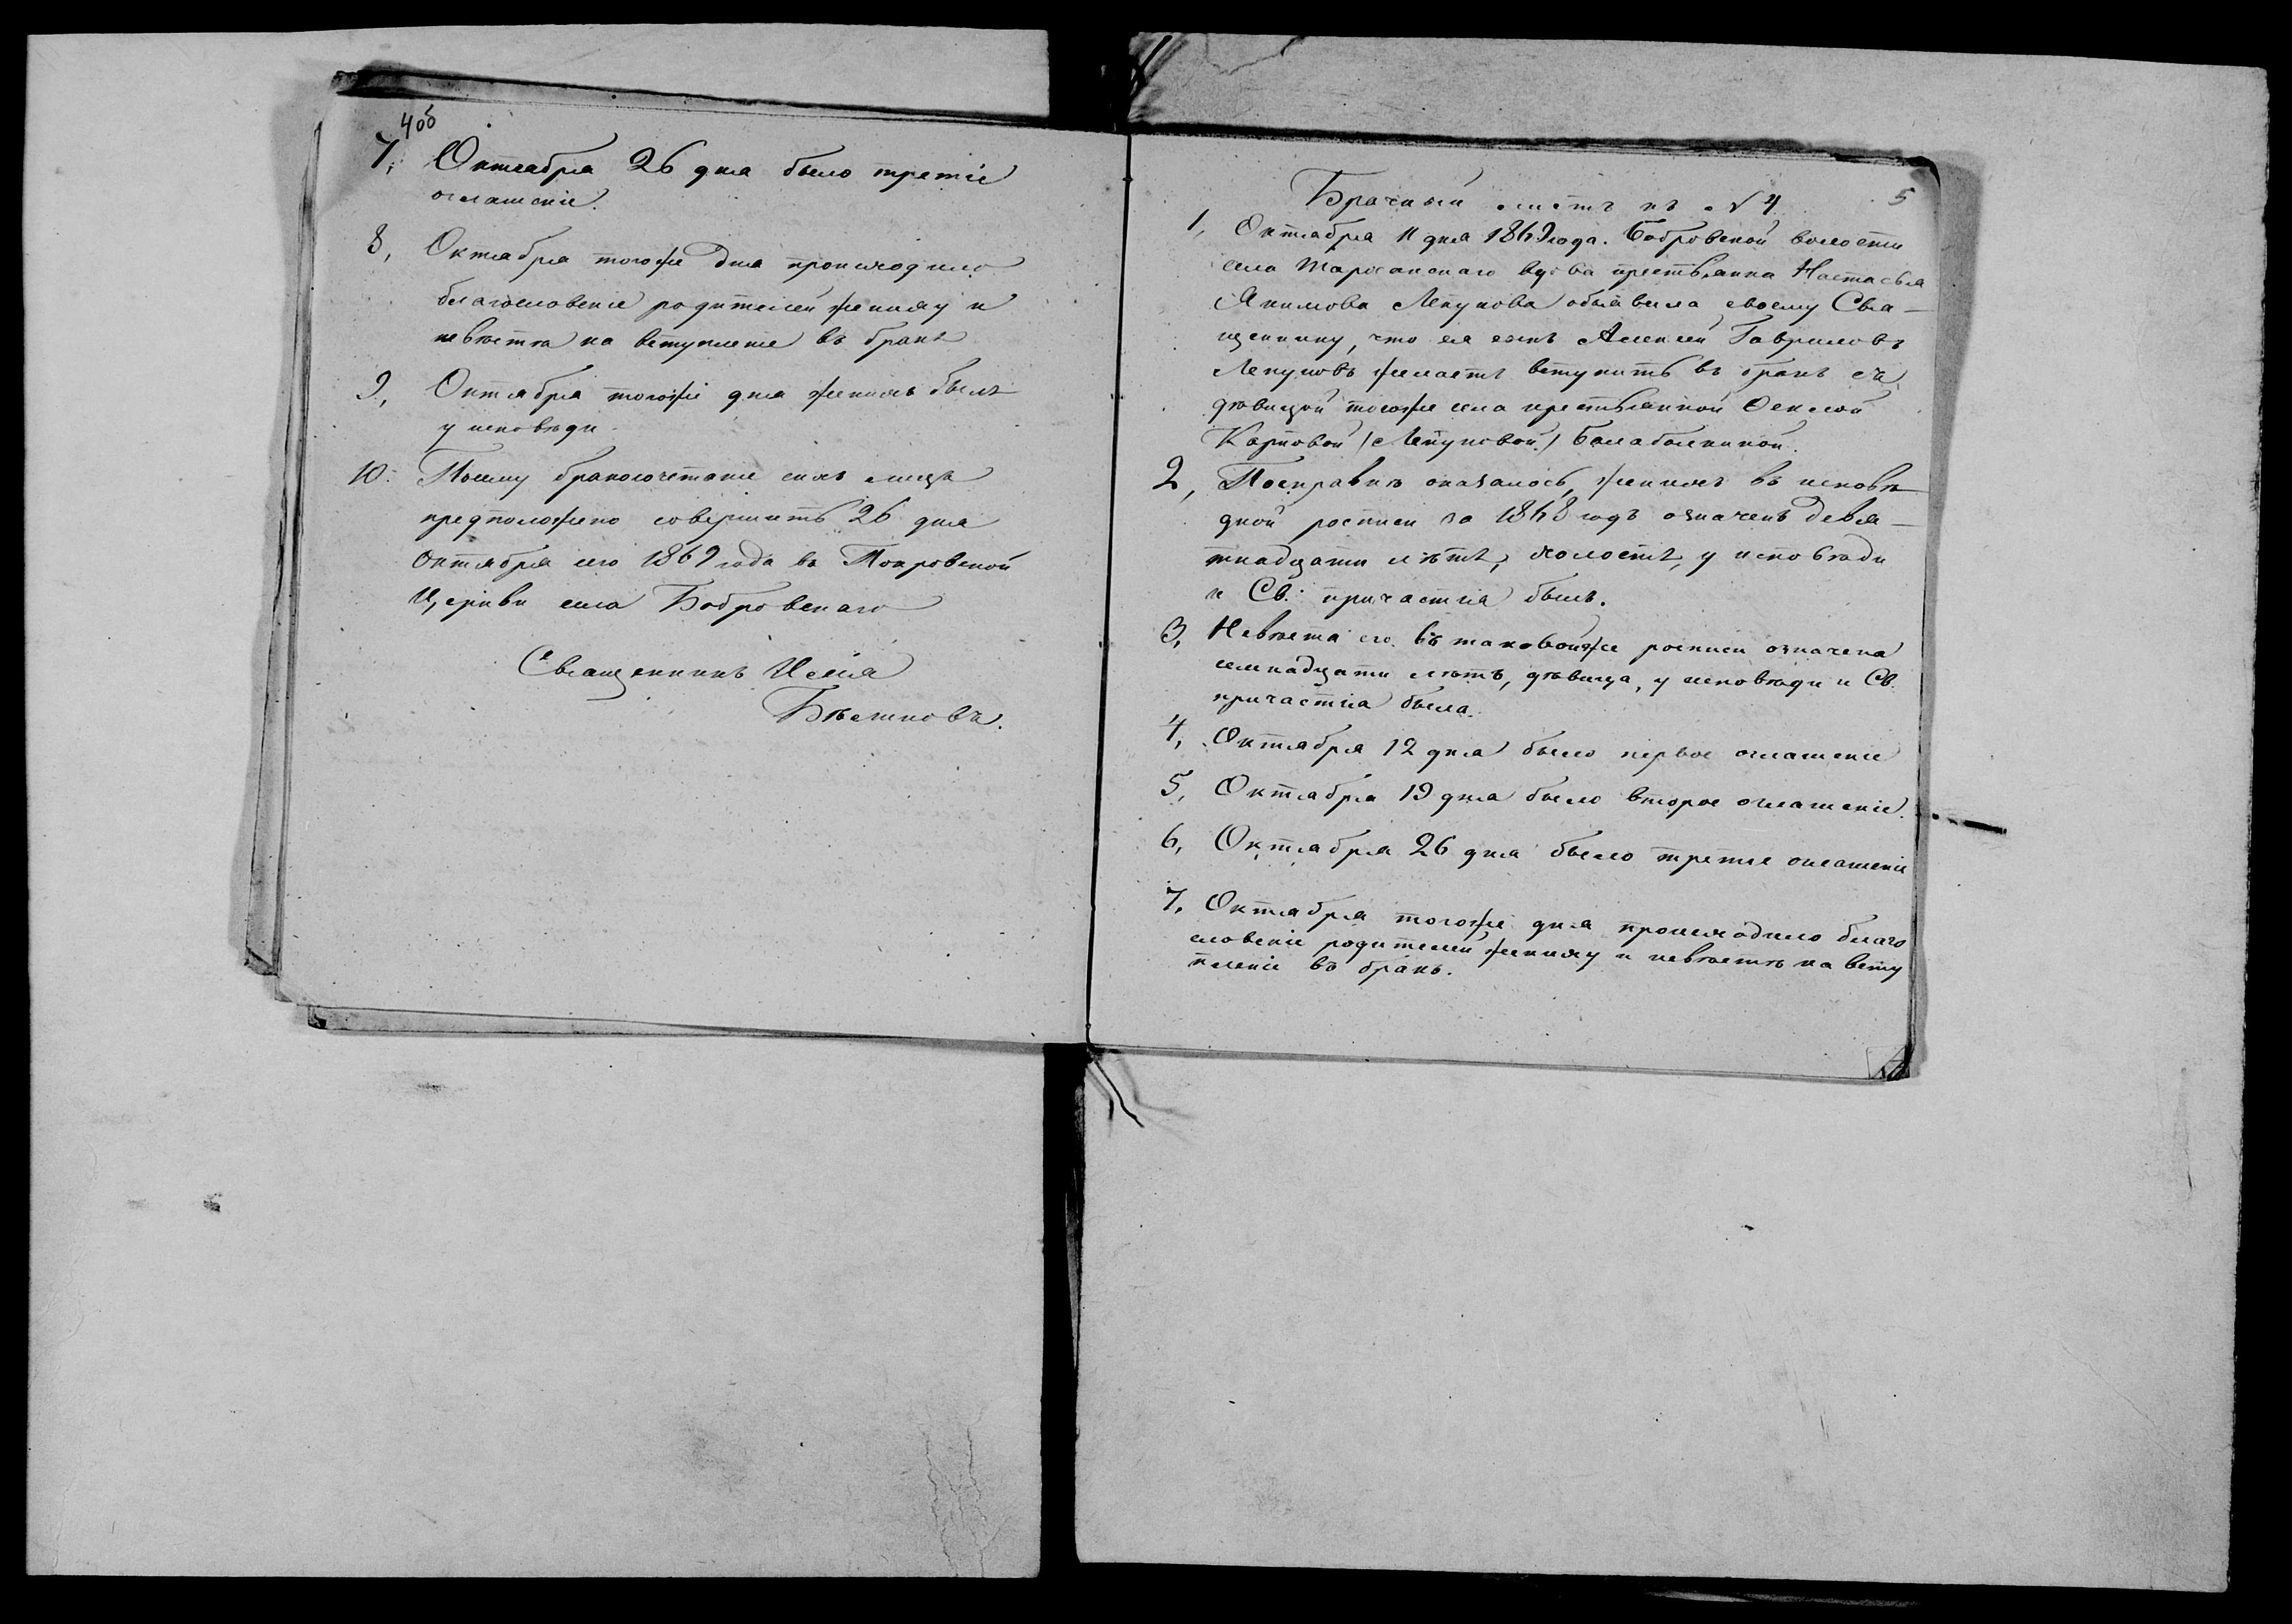 4об
7. Октября 26 дня было третіе
оглашеніе.
8, Октября тогоже дня происходило
благословеніе родителей жениху и
невѣстѣ на вступленіе въ бракъ
9, Октября тогоже дня женихъ былъ
у исповѣди.
10. Посему бракосочетаніе сихъ лицъ
предположено совершить 26 дня
октября сего 1869 года въ Покровской
Церкви села Бобровскаго
Священникъ Илія
5
Брачный листъ къ № 4
1, Октября 11 дня 1869 года. Бобровской волости
села вдова крестьянка Настасья
Акимова Лепукова объявила своему Свя-
щеннику, что ея сынъ Алексѣй Гавриловъ
Лепуковъ желаетъ вступить въ бракъ съ
дѣвицей тогоже села крестьянкой Феклой
Карповой (Лепуковой) Балабошкиной.
2, Посправкѣ оказалось, женихъ въ исповѣ-
дной росписи за 1868 годъ означенъ девя-
тнадцати лѣтъ, холостъ, у исповѣди
и Св. причастія былъ.
3, Невѣста его въ таковойже росписи означена
семнадцати лѣтъ, дѣвица, у исповѣди и Св.
причастія была.
4, Октября 12 дня было первое оглашеніе
5, Октября 19 дня было второе оглашеніе.
6, Октября 26 дня было третіе оглашеніе
7, Октября тогоже дня происходило благо
словеніе родителей жениху и невѣстѣ на всту
пленіе въ бракъ.